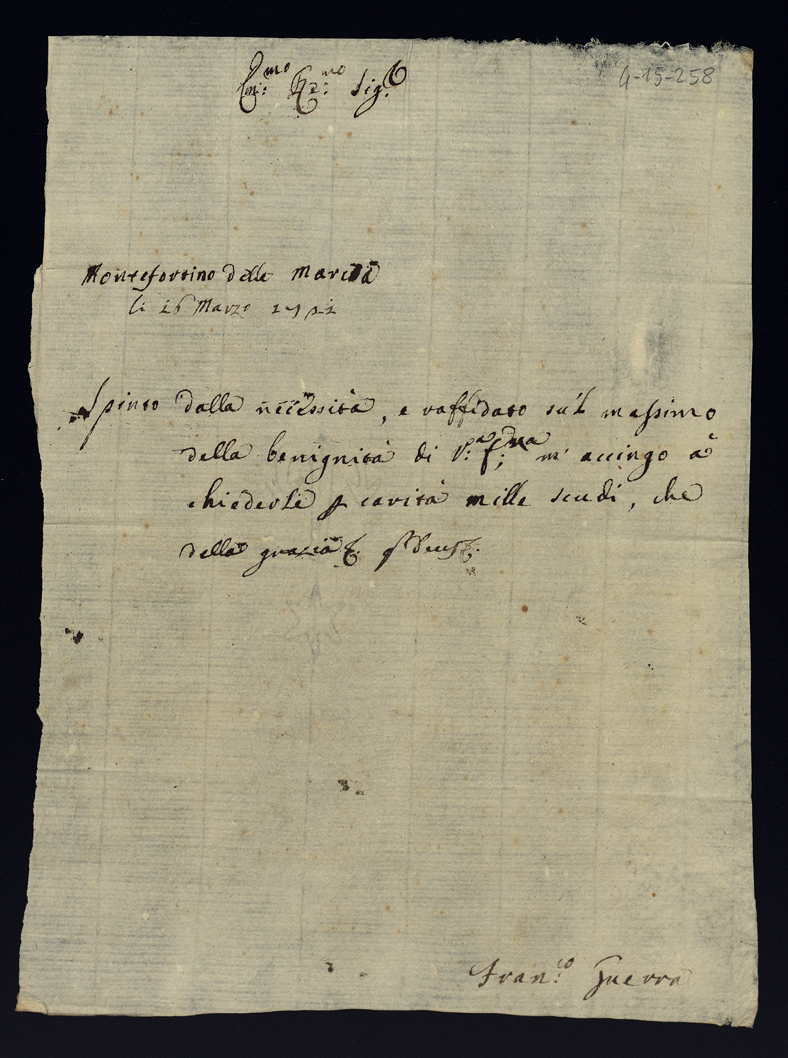 Em:mo Re:mo Sig.
4-15-258
Montefortino della Marca
li 26 Marzo
Spinto dalla necessità, e raffidato su'l massimo
della benignità di V:a E:nza m'accingo à
chiederle p carità mille scudi, che
della grazia &.
Fran:co Guerra